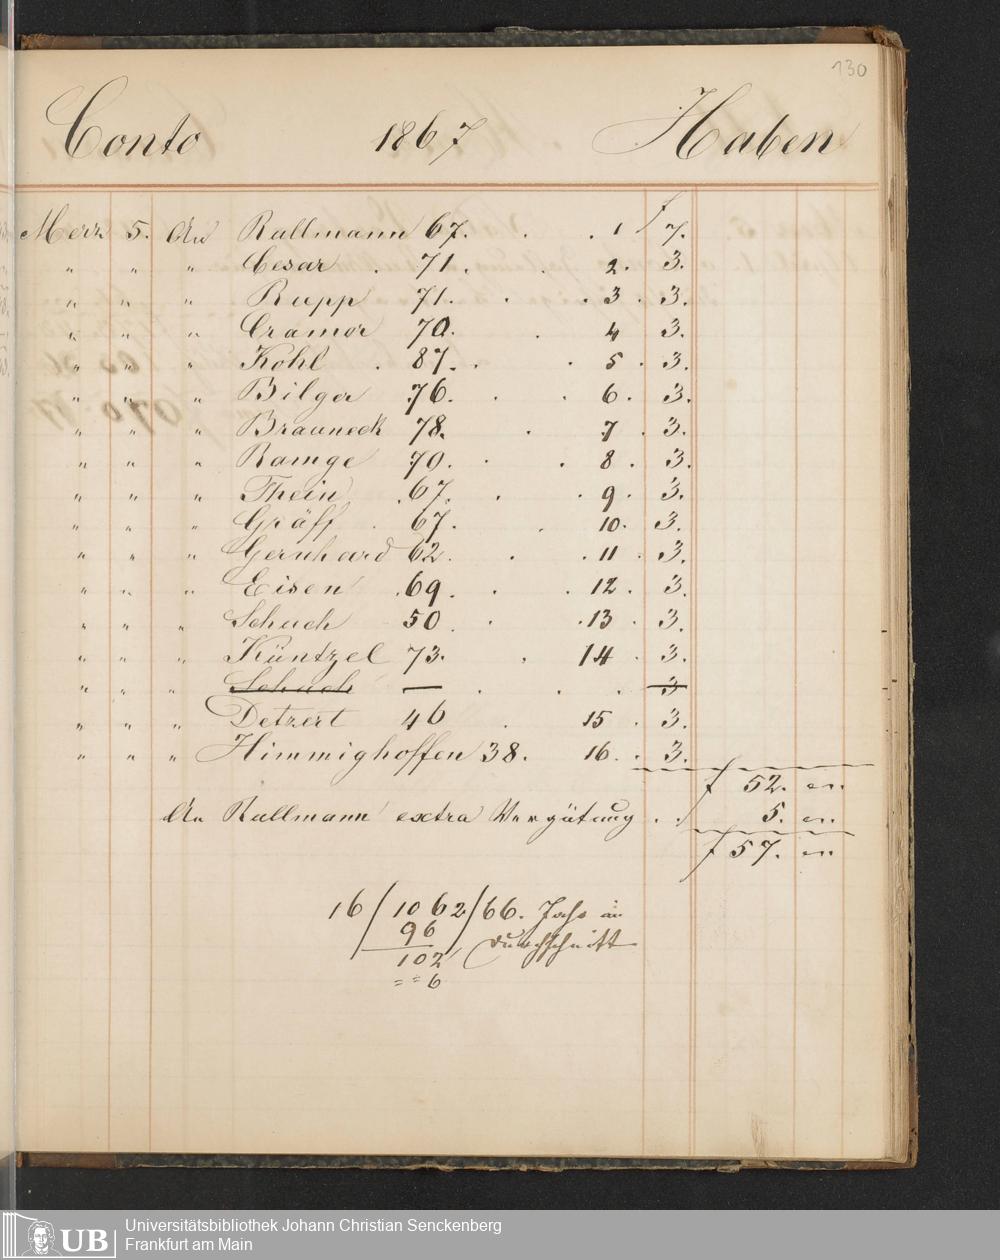 130
Conto 1867 Haben
Merz 5. An Rallmann 67. . . 1 f 7.
" " " Cesar . 71. . 2. 3.
" " " Rupp 71. . . 3 . 3.
" " " Cramer 70. . 4 3.
" " " Kohl . 87. . . 5 . 3.
" " " Bilger 76. . . 6 . 3.
" " " Brauneck 78. . 7 . 3.
" " " Ramge 70. . . 8 . 3.
" " " Thein . 67. . . 9 . 3.
" " " Gräff . 67. . 10. 3.
" " " Gernhard 62. . . 11 . 3.
" " " Eisen . 69. . . 12 . 3.
" " " Schuch 50. . . 13 . 3.
" " " Küntzel 73. . 14 . 3.
" " " Schuch — . . . 3
" " " Detzert 46 . 15 . 3.
" " " Himmighoffen 38. 16. . 3.
f 52. "
An Rallmann extra Vergütung . . 5. "
f 57. "
16 / 1062 / 66. Jahr im
96 Durchschnitt
102
= = 6
UB Universitätsbibliothek Johann Christian Senckenberg
Frankfurt am Main